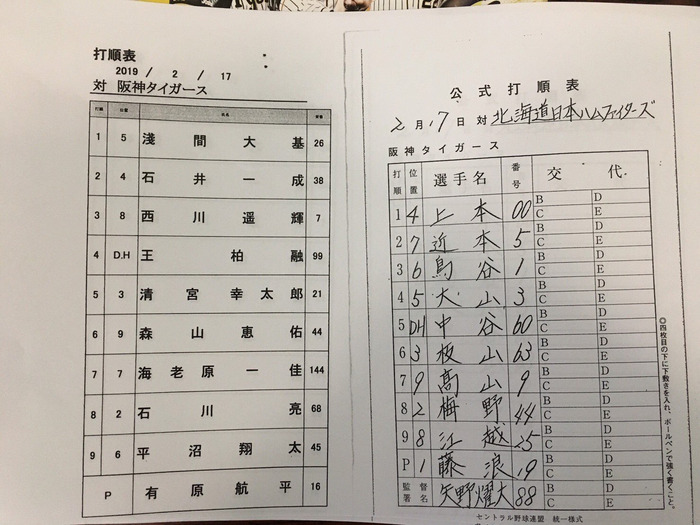 打順表
2019 / 2 / 17
対 阪神タイガース
打順 位置 氏名 背番
1 5 淺間大基 26
2 4 石井一成 38
3 8 西川遥輝 7
4 D.H 王柏融 99
5 3 清宮幸太郎 21
6 9 森山恵佑 44
7 7 海老原一佳 144
8 2 石川亮 68
9 6 平沼翔太 45
P 有原航平 16
公式打順表
2月17日 対 北海道日本ハムファイターズ
阪神タイガース
打順 位置 選手名 番号 交代
1 4 上本 00 B D C E
2 7 近本 5 B D C E
3 6 鳥谷 1 B D C E
4 5 大山 3 B D C E
5 DH 中谷 60 B D C E
6 3 板山 63 B D C E
7 9 高山 9 B D C E
8 2 梅野 44 B D C E
9 8 江越 25 B D C E
P 1 藤浪 19 B D C E
監督署名 矢野燿大 88 B D C E
◎四枚目の下に下敷きを入れ、ボールペンで強く書くこと。
セントラル野球連盟 統一様式